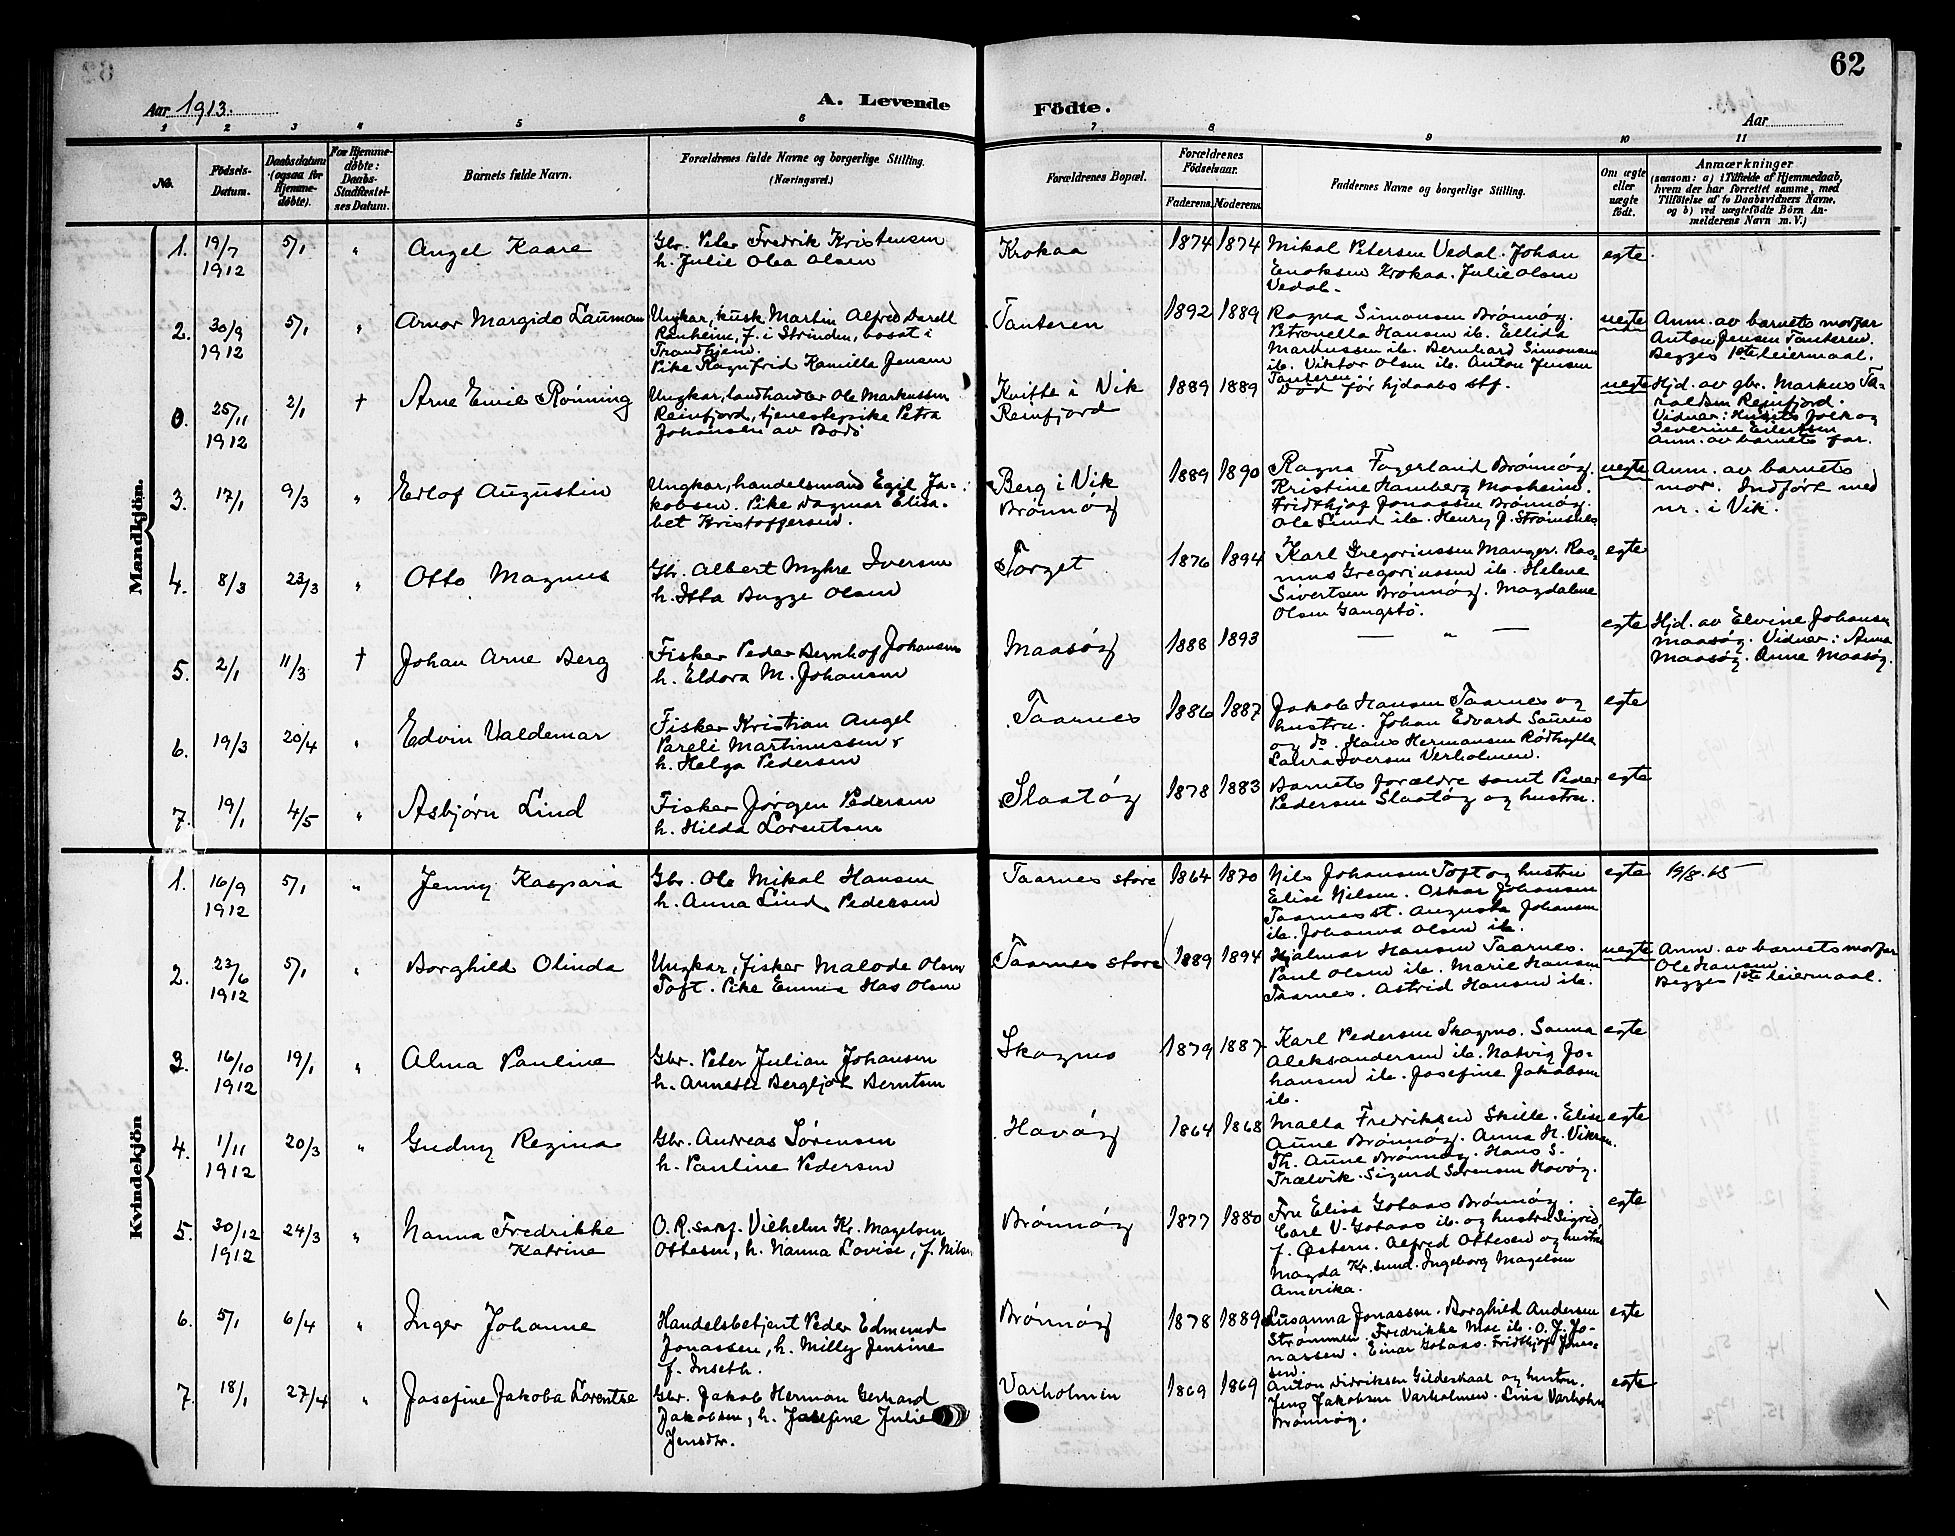 62
Aar 1913.
A. Levende Födte.
Aar
1 2 3 4 5 6 7 8 9 10 11
No.
Födsels-
Datum.
Daabsdatum
(ogsaa for
Hjemme-
døbte).
For Hjemme-
døbte:
Daabs-
Stadfæstel-
ses Datum.
Barnets fulde Navn.
Forældrenes fulde Navne og borgerlige Stilling.
(Næringsvei.)
Forældrenes Bopæl.
Forældrenes
Födselsaar.
Faderens. Moderens.
Faddernes Navne og borgerlige Stilling.
Om ægte
eller
uægte
födt.
Anmærkninger
(saasom: a) i Tilfælde af Hjemmedaab,
hvem der har forrettet samme, med
Tilföielse af to Daabsvidners Navne,
og b) ved uægtefödte Börn An-
melderens Navn m. V.)
Mandkjön.
1. 19/7 1912 5/1 " Angel Kaare
Gbr. Peter Fredrik Kristensen
h. Julie Olea Olsen
Krokaa 1874 1874
Mikal Petersen Vedal. Johan
Enoksen Krokaa. Julie Olsen
Vedal.
egte.
2. 30/9 1912 5/1 " Arnor Margido Lauman
Ungkar, kusk Martin Alfred Dardl
Ranheim, f. i Strinden, bosat i
Trondhjem.
Pike Ragnfrid Kamilla Jensen
Tanteren 1892 1889
Ragna Simonsen Brønnøy.
Petronella Hansen ib. Ellida
Markussen ib. Bernhard Simonsen
ib. Viktor Olsen ib. Anton Jensen
Tanteren
uegte
Anm. av barnets morfar
Anton Jensen Tanteren.
Begges 1ste leiermaal.
0. 25/11 1912 2/1 † Arne Emil Rønning
Ungkar, landhandler Ole Markussen
Reinfjord, tjenestepike Petra
Johansen av Bodø
Kvitte i Vik
Reinfjord
1889 1889
Død før hjdaabs stf.
uegte
Hjd. av gbr. Markus Ha-
raldsen Reinfjord.
Vidner: Husets folk og
Severine Eilertsen
Anm. av barnets far.
3. 17/1 9/3 " Edlof Augustin
Ungkar, handelsmand Egil Ja-
kobsen. Pike Dagmar Elisa-
bet Kristoffersen.
Berg i Vik
Brønnøy
1889 1890
Ragna Fagerland Brønnøy.
Kristine Hamberg Mosheim.
Fridthjof Jonassen Brønnøy.
Ole Lund ib. Henry J. Strømsnes
uegte
Anm. av barnets
mor. Indført med
nr. i Vik.
4. 8/3 23/3 " Otto Magnus
Gbr. Albert Myhre Iversen
h. Itta Bugge Olsen
Torget 1876 1894
Karl Gregoriussen Manger. Ras-
mus Gregoriussen ib. Helene
Sivertsen Brønnøy. Magdalene
Olsen Gangstø.
egte
5. 2/1 11/3 † Johan Arne Berg
Fisker Peder Bernhof Johansen
h. Eldora M. Johansen
Maasøy 1888 1893
— " —
egte
Hjd. av Elvine Johansen
Maasøy. Vidner: Anna
Maasøy. Anne Maasøy.
6. 19/3 20/4 " Edvin Valdemar
Fisker Kristian Angel
Pareli Martinussen
h. Helga Pedersen
Taarnes 1886 1887
Jakob Hansen Taarnes og
hustru. Johan Edvard Saures
og do. Hans Hermansen Rødhylla
Laura Iversen Verholmen.
egte
7. 19/1 4/5 " Asbjørn Lind
Fisker Jørgen Pedersen
h. Hilda Lorentsen
Slaatøy 1878 1883
Barnets forældre samt Peder
Pedersen Slaatøy og hustru.
egte
Kvindekjön
1. 16/9 1912 5/1 " Jenny Kaspara
Gbr. Ole Mikal Hansen
h. Anna Lind Pedersen
Taarnes store 1864 1870
Nils Johansen Toft og hustru
Elise Nilsen. Oskar Johansen
Taarnes st. Augusta Johansen
ib. Johanna Olsen ib.
egte
19/8.65
2. 23/6 1912 5/1 " Borghild Olinda
Ungkar, fisker Malode Olsen
Toft. Pike Emma Has Olsen
Taarnes store 1889 1894
Hjalmar Hansen Taarnes.
Paul Olsen ib. Marie Hansen
Taarnes. Astrid Hansen ib.
uegte
Anm. av barnets morfar
Ole Hansen
Begges 1ste leiermaal.
3. 16/10 1912 19/1 " Alma Pauline
Gbr. Peter Julian Johansen
h. Annette Bergljot Berntsen
Skogmo 1879 1887
Karl Pedersen Skogmo. Sanna
Aleksandersen ib. Natvig Jo-
hansen ib. Josefine Jakobsen
ib.
egte
4. 1/11 1912 20/3 " Gudny Regina
Gbr. Andreas Sørensen
h. Pauline Pedersen
Havøy 1864 1868
Malla Fredriksen Skille. Elise
Aune Brønnøy. Anna H. Viksen.
Th. Aune Brønnøy. Hans S.
Trælvik. Sigurd Sørensen Havøy.
egte
5. 30/12 1912 24/3 " Nanna Fredrikke
Katrine
O. R. sakf. Vilhelm Kr. Magelsen
Ottesen, h. Nanna Lovise, f. Nilsen
Brønnøy 1877 1880
Fru Elisa Gotaas Brønnøy.
Carl V. Gotaas ib. og hustru Sigrid,
f. Østern. Alfred Ottesen og hustru
Magda Kr.sund. Ingeborg Magelsen
Amerika.
egte
6. 5/1 6/4 " Inger Johanne
Handelsbetjent Peder Edmund
Jonassen, h. Milly Jensine
f. Inseth.
Brønnøy 1878 1889
Susanna Jonassen. Borghild Andersen
Strømmen. Fredrikke Moe ib. O. J. Jo-
nassen. Einar Gotaas. Fridthjof Jonas-
sen.
egte
7. 18/1 27/4 " Josefine Jakoba Lorentze
Gbr. Jakob Herman Gerhard
Jakobsen, h. Josefine Julie
Jensdtr.
Varholmen 1869 1869
Anton Didriksen Gildeskaal og hustru.
Jens Jakobsen Varholmen. Lina Varholm
Brønnøy.
egte